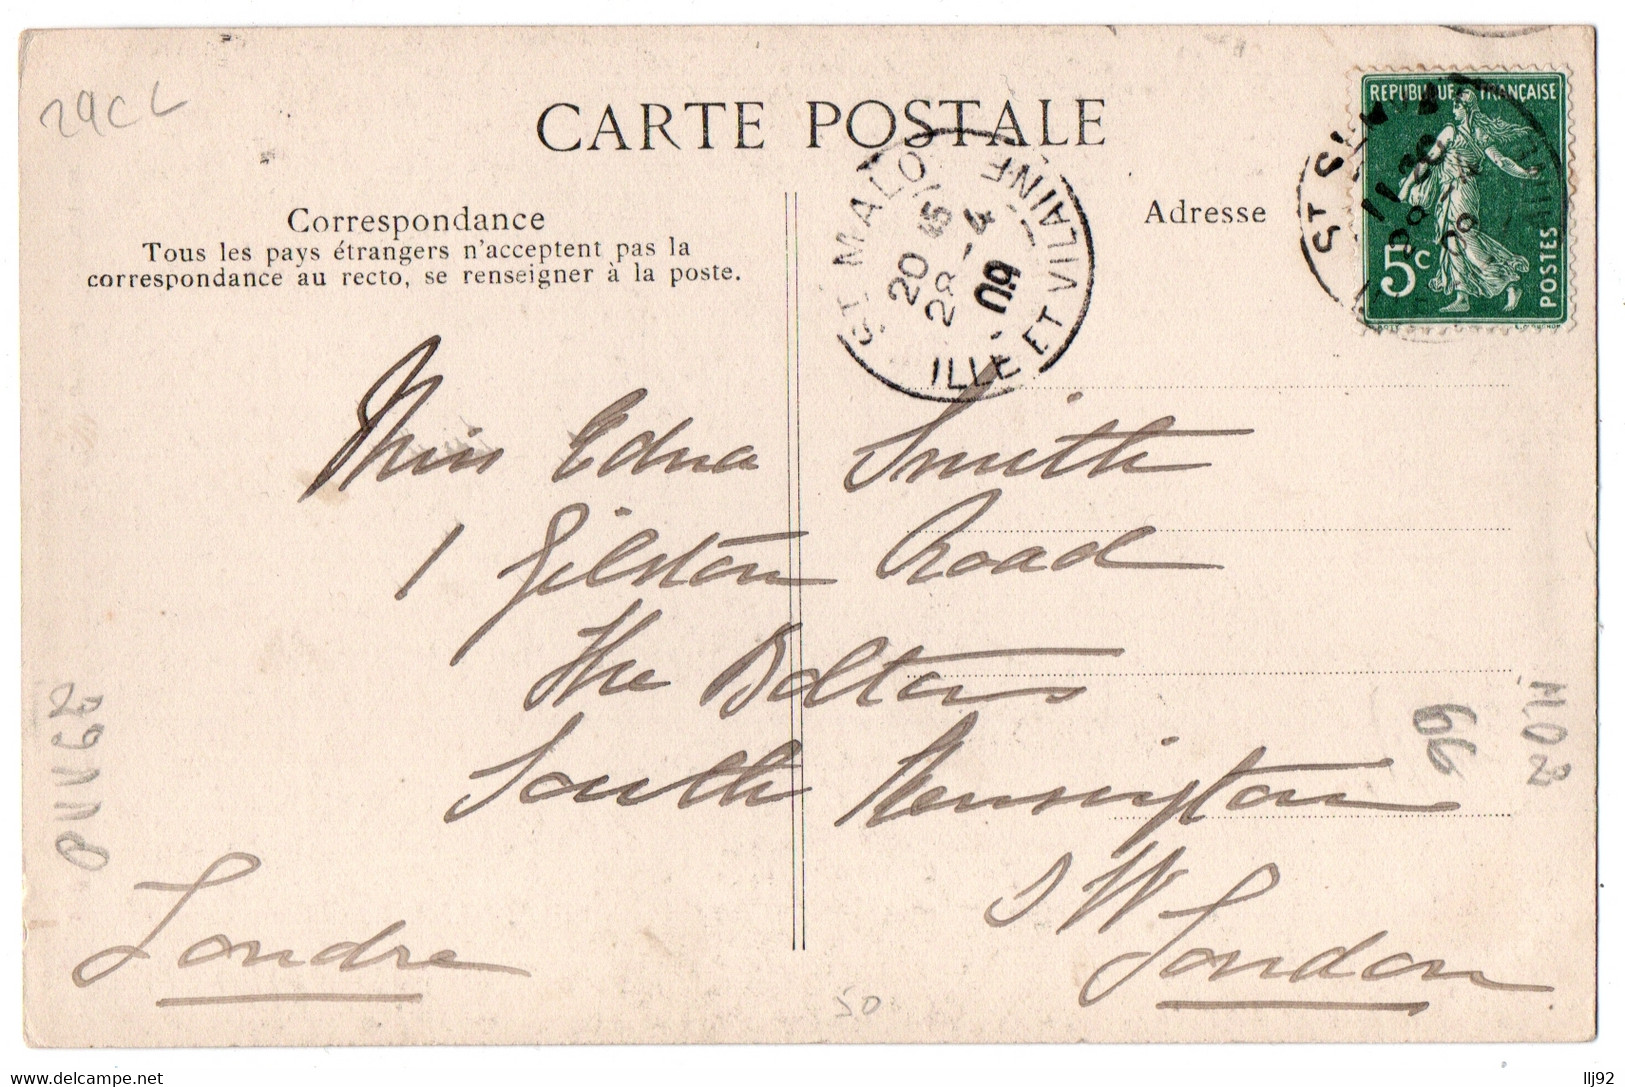 29CL
CARTE POSTALE
REPUBLIQUE FRANÇAISE
5c
POSTES
Correspondance
Tous les pays étrangers n'acceptent pas la
correspondance au recto, se renseigner à la poste.
Adresse
ST MALO
20 15
28 - 4
09
ILLE ET VILAINE
Miss Edna Smith
1 Gilston Road
The Boltons
South Kensington
S W
London
Londre
66
50
www.delcampe.net
llj92